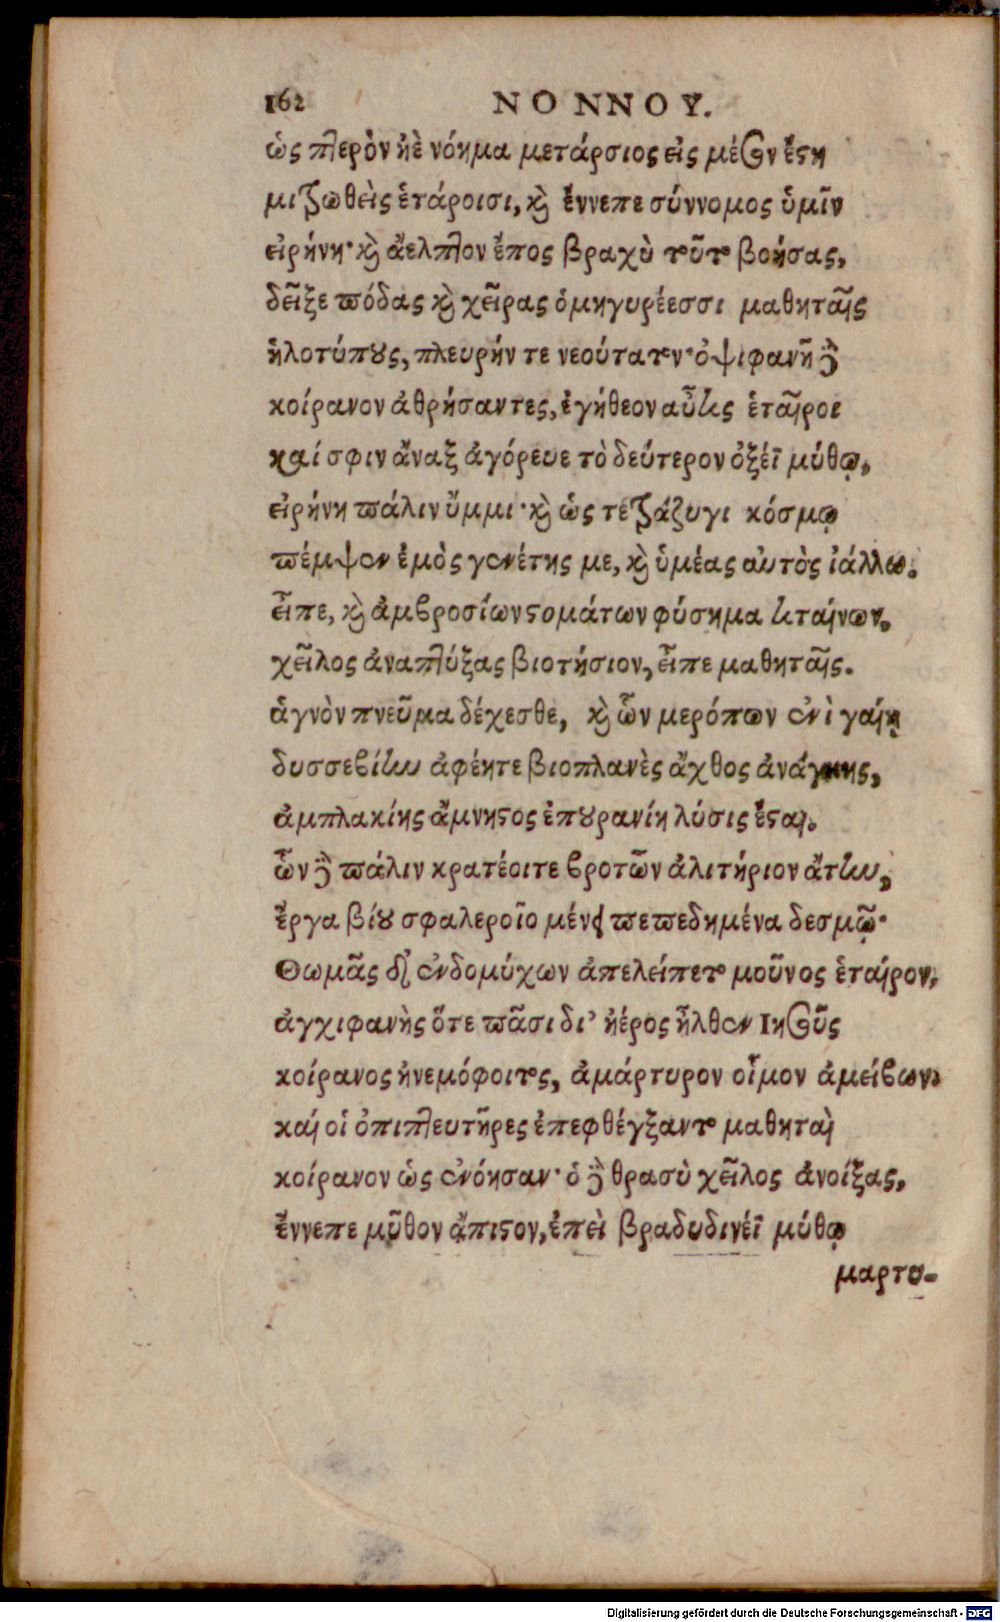 162 ΝΟΝΝΟΥ.
ὡς πτερὸν ἠὲ νόημα μετάρσιος εἰς μέσον ἔστη
μιχθεὶς ἑτάροισι, καὶ ἔννεπε σύννομος ὑμῖν
εἰρήνη· καὶ ἄελπτον ἔπος βραχὺ τοῦτο βοήσας,
δεῖξε πόδας καὶ χεῖρας ὁμηγυρέεσσι μαθηταῖς
ἡλοτύπους, πλευρήν τε νεούτατον· ὀψιφανῆ δὲ
κοίρανον ἀθρήσαντες, ἐγήθεον αὖτις ἑταῖροι
καί σφιν ἄναξ ἀγόρευε τὸ δεύτερον ὀξέϊ μύθῳ,
εἰρήνη πάλιν ὔμμι· καὶ ὡς τετράζυγι κόσμῳ
πέμψεν ἐμὸς γενέτης με, καὶ ὑμέας αὐτὸς ἰάλλω.
εἶπε, καὶ ἀμβροσίων στομάτων φύσημα τιταίνων,
χεῖλος ἀναπτύξας βιοτήσιον, εἶπε μαθηταῖς.
ἁγνὸν πνεῦμα δέχεσθε, καὶ ὧν μερόπων ἐνὶ γαίῃ
δυσσεβίην ἀφέητε βιοπλανὲς ἄχθος ἀνάγκης,
ἀμπλακίης ἄμνηστος ἐπουρανίη λύσις ἔσται.
ὧν δὲ πάλιν κρατέοιτε βροτῶν ἀλιτήριον ἄτην,
ἔργα βίου σφαλεροῖο μένει πεπεδημένα δεσμῷ·
Θωμᾶς δ' ἐνδομύχων ἀπελείπετο μοῦνος ἑταίρον,
ἀγχιφανὴς ὅτε πᾶσι δι' ἠέρος ἦλθεν Ιησοῦς
κοίρανος ἠνεμόφοιτος, ἀμάρτυρον οἶμον ἀμείβων,
καί οἱ ὀπιπτευτῆρες ἐπεφθέγξαντο μαθηταὶ
κοίρανον ὡς ἐνόησαν· ὁ δὲ θρασὺ χεῖλος ἀνοίξας,
ἔννεπε μῦθον ἄπιστον, ἐπεὶ βραδυδινέϊ μύθῳ
μαρτυ-
Digitalisierung gefördert durch die Deutsche Forschungsgemeinschaft - DFG